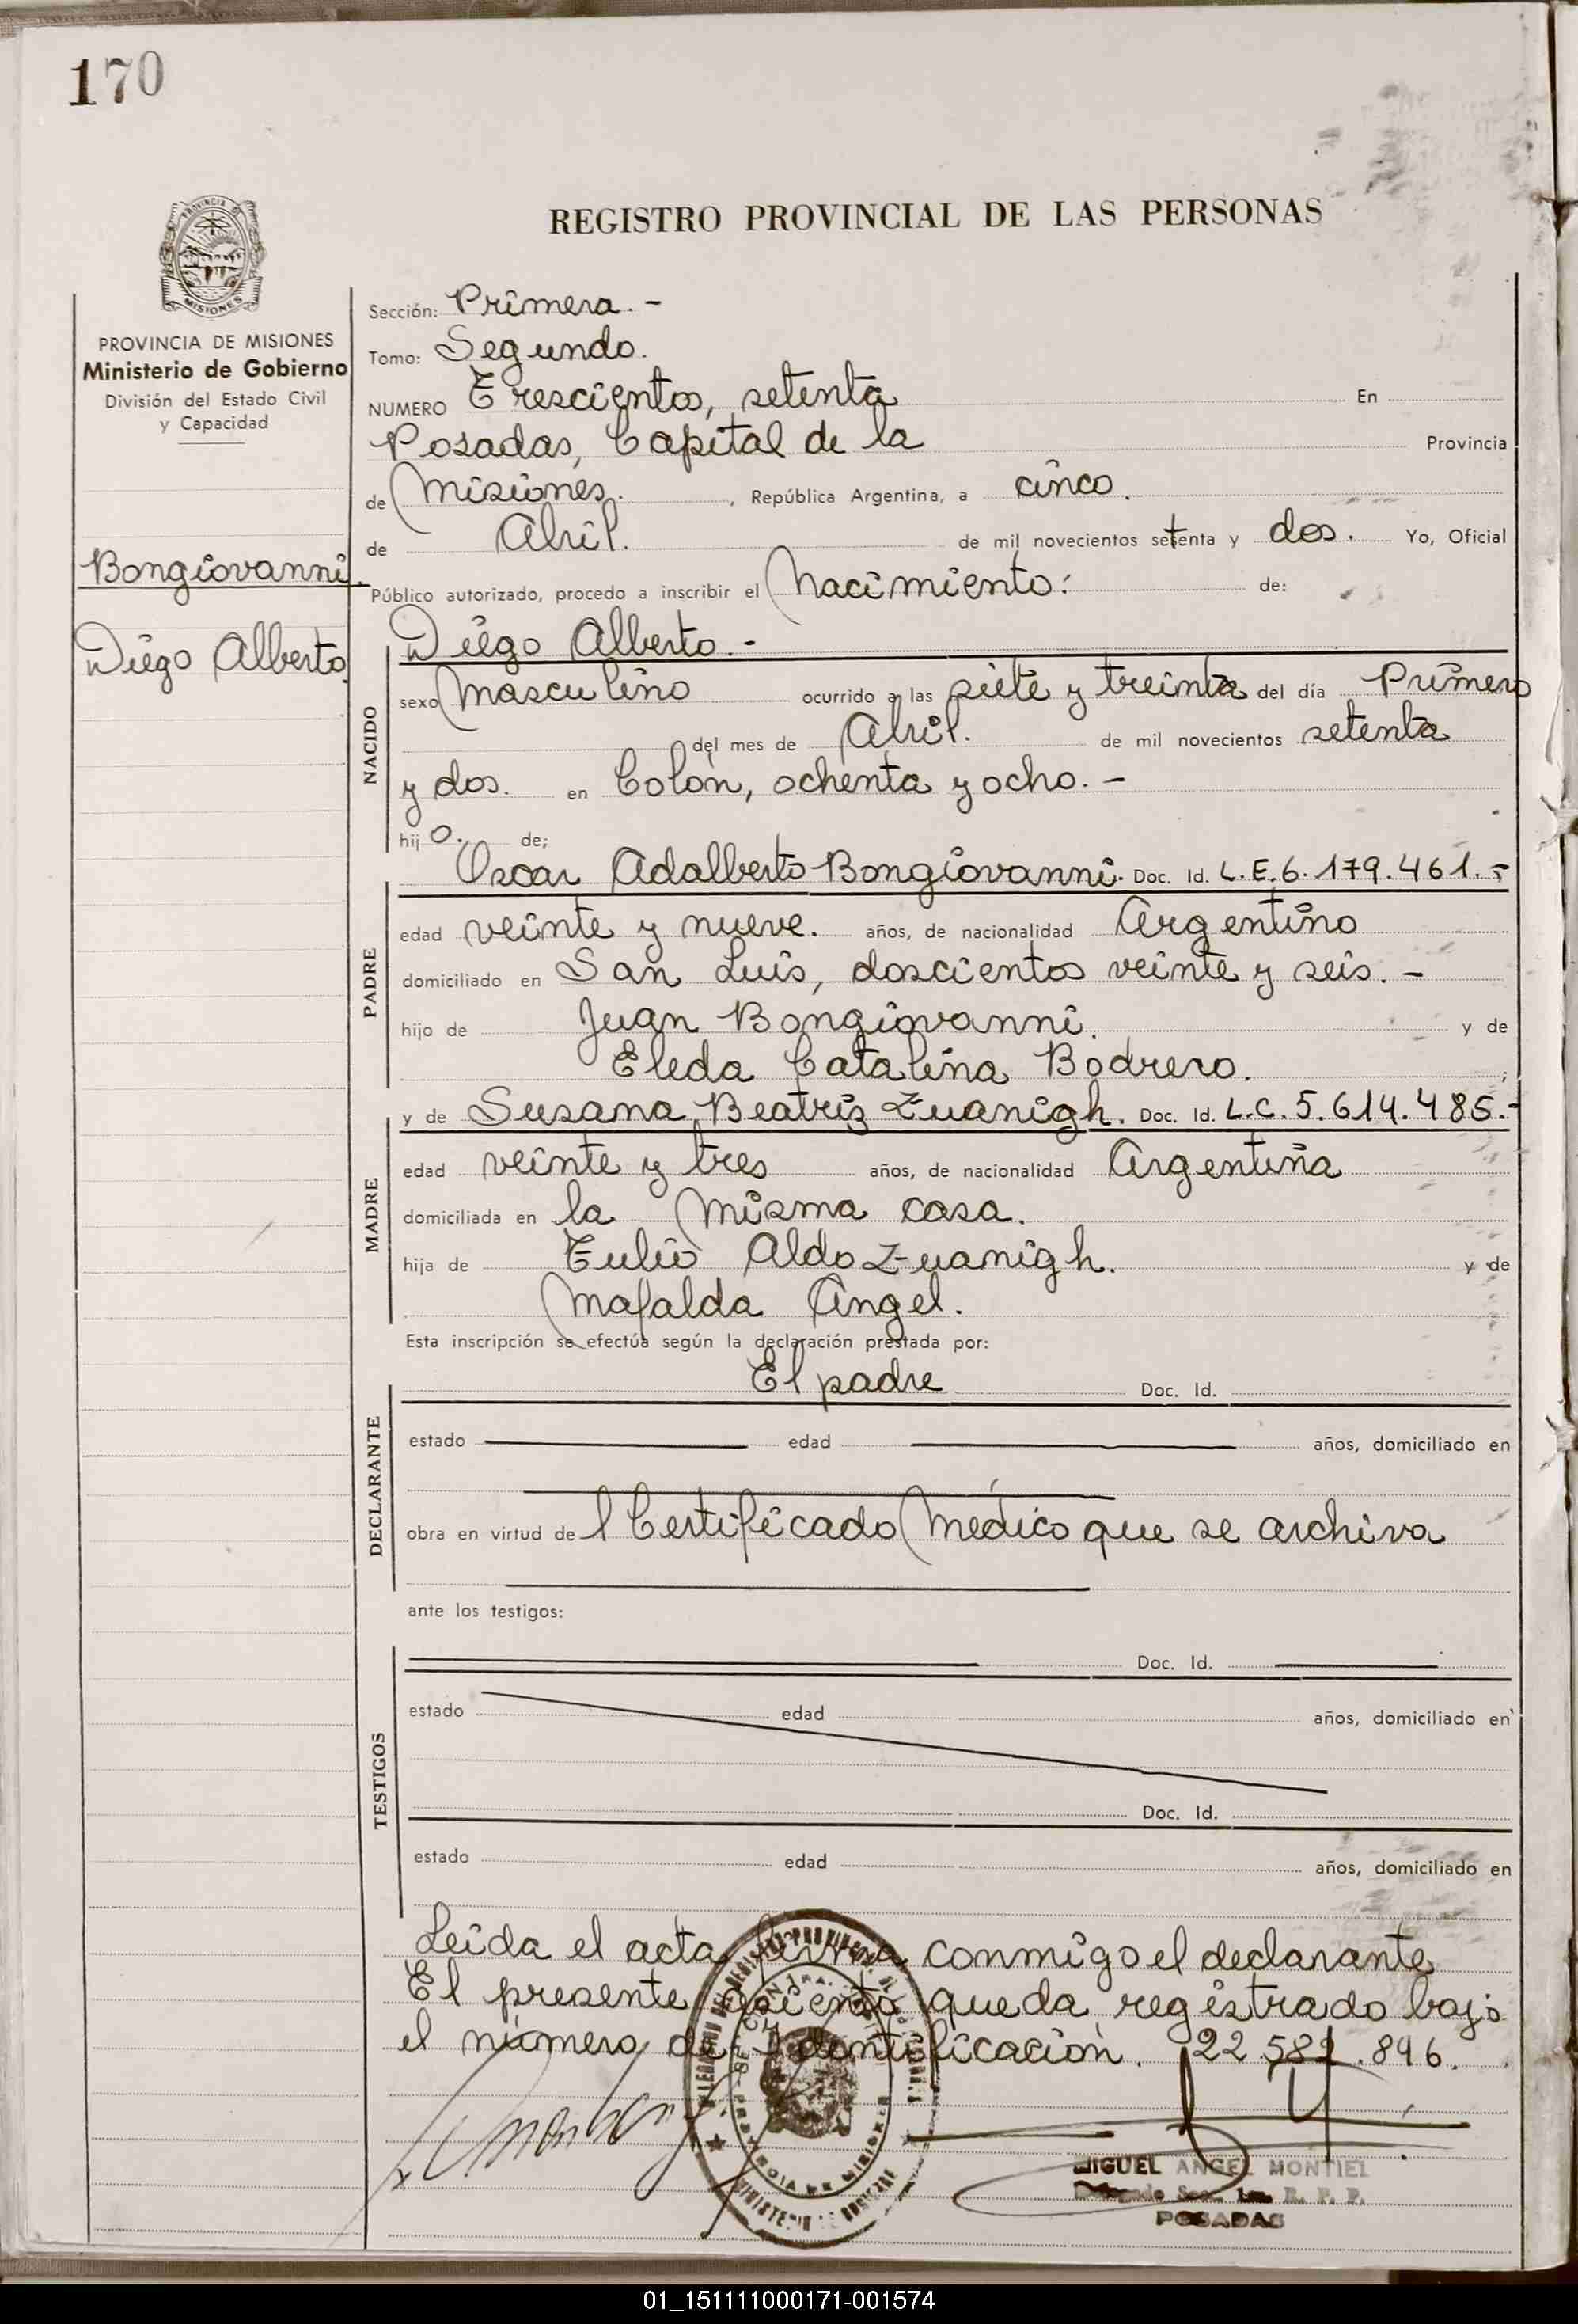 170
PROVINCIA
MISIONES
REGISTRO PROVINCIAL DE LAS PERSONAS
PROVINCIA DE MISIONES
Ministerio de Gobierno
División del Estado Civil
y Capacidad
Bongiovanni.
Diego Alberto.
Sección: Primera. -
Tomo: Segundo.
NUMERO Trescientos, setenta En
Posadas, Capital de la Provincia
de Misiones. , República Argentina, a cinco.
de Abril. de mil novecientos setenta y dos. Yo, Oficial
Público autorizado, procedo a inscribir el Nacimiento: de:
Diego Alberto. -
NACIDO
sexo Masculino ocurrido a las siete y treinta del día Primero
del mes de Abril. de mil novecientos setenta
y dos. en Colón, ochenta y ocho. -
hijo. de;
Oscar Adalberto Bongiovanni. Doc. Id. L.E. 6.179.461.-
PADRE
edad veinte y nueve. años, de nacionalidad Argentino
domiciliado en San Luis, doscientos veinte y seis. -
hijo de Juan Bongiovanni. y de
Eleda Catalina Bodrero. ;
y de Susana Beatriz Zuanigh. Doc. Id. L.C. 5.614.485.-
MADRE
edad veinte y tres años, de nacionalidad Argentina
domiciliada en la misma casa.
hija de Tulio Aldo Zuanigh. y de
Mafalda Angel.
Esta inscripción se efectúa según la declaración prestada por:
El padre Doc. Id.
DECLARANTE
estado edad años, domiciliado en
obra en virtud del Certificado Médico que se archiva
ante los testigos:
Doc. Id.
TESTIGOS
estado edad años, domiciliado en
Doc. Id.
estado edad años, domiciliado en
Leída el acta, firma conmigo el declarante
El presente asiento queda registrado bajo
el número de Identificación. 22 589.896.
MIGUEL ANGEL MONTIEL
Delegado Sec. 1ra. R. P. P.
POSADAS
01_151111000171-001574